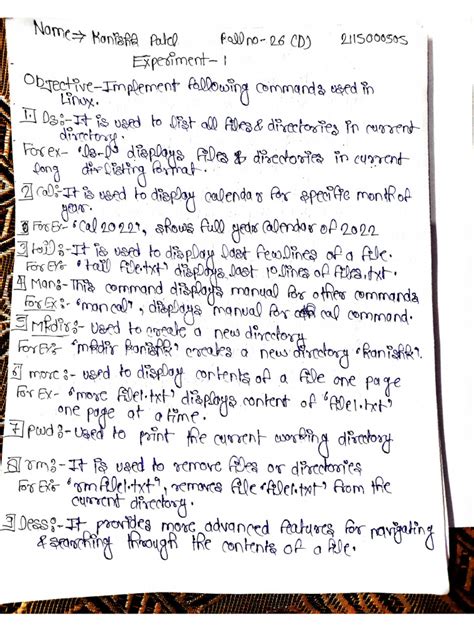 Name⇒ Kanishk Patel Roll no- 26 (D) 2115000505
Experiment-1
Objective-Implement following commands used in
Linux.
1] Ls:- It is used to list all files & directories in current
directory.
For ex- 'ls-l' displays files & directories in current
long dir listing format.
2] Cal:- It is used to display calendar for specific month of
year.
For Ex- 'Cal 2022', shows full year calendar of 2022
3] tail:- It is used to display last few lines of a file.
For Ex:- "tail file.txt" displays last 10 lines of files.txt.
4] Man:- This command displays manual for other commands
For Ex:- "man cal", displays manual for cal command.
5] Mkdir:- Used to create a new directory
For Ex:- 'mkdir Kanishk' creates a new directory 'Kanishk'.
6] more:- used to display contents of a file one page
For Ex- "more file1.txt" displays content of 'file1.txt'
one page at a time.
7] pwd:- Used to print the current working directory
8] rm:- It is used to remove files or directories
For Ex:- 'rm file1.txt', removes file 'file1.txt' from the
current directory.
9] less:- It provides more advanced features for navigating
& searching through the contents of a file.